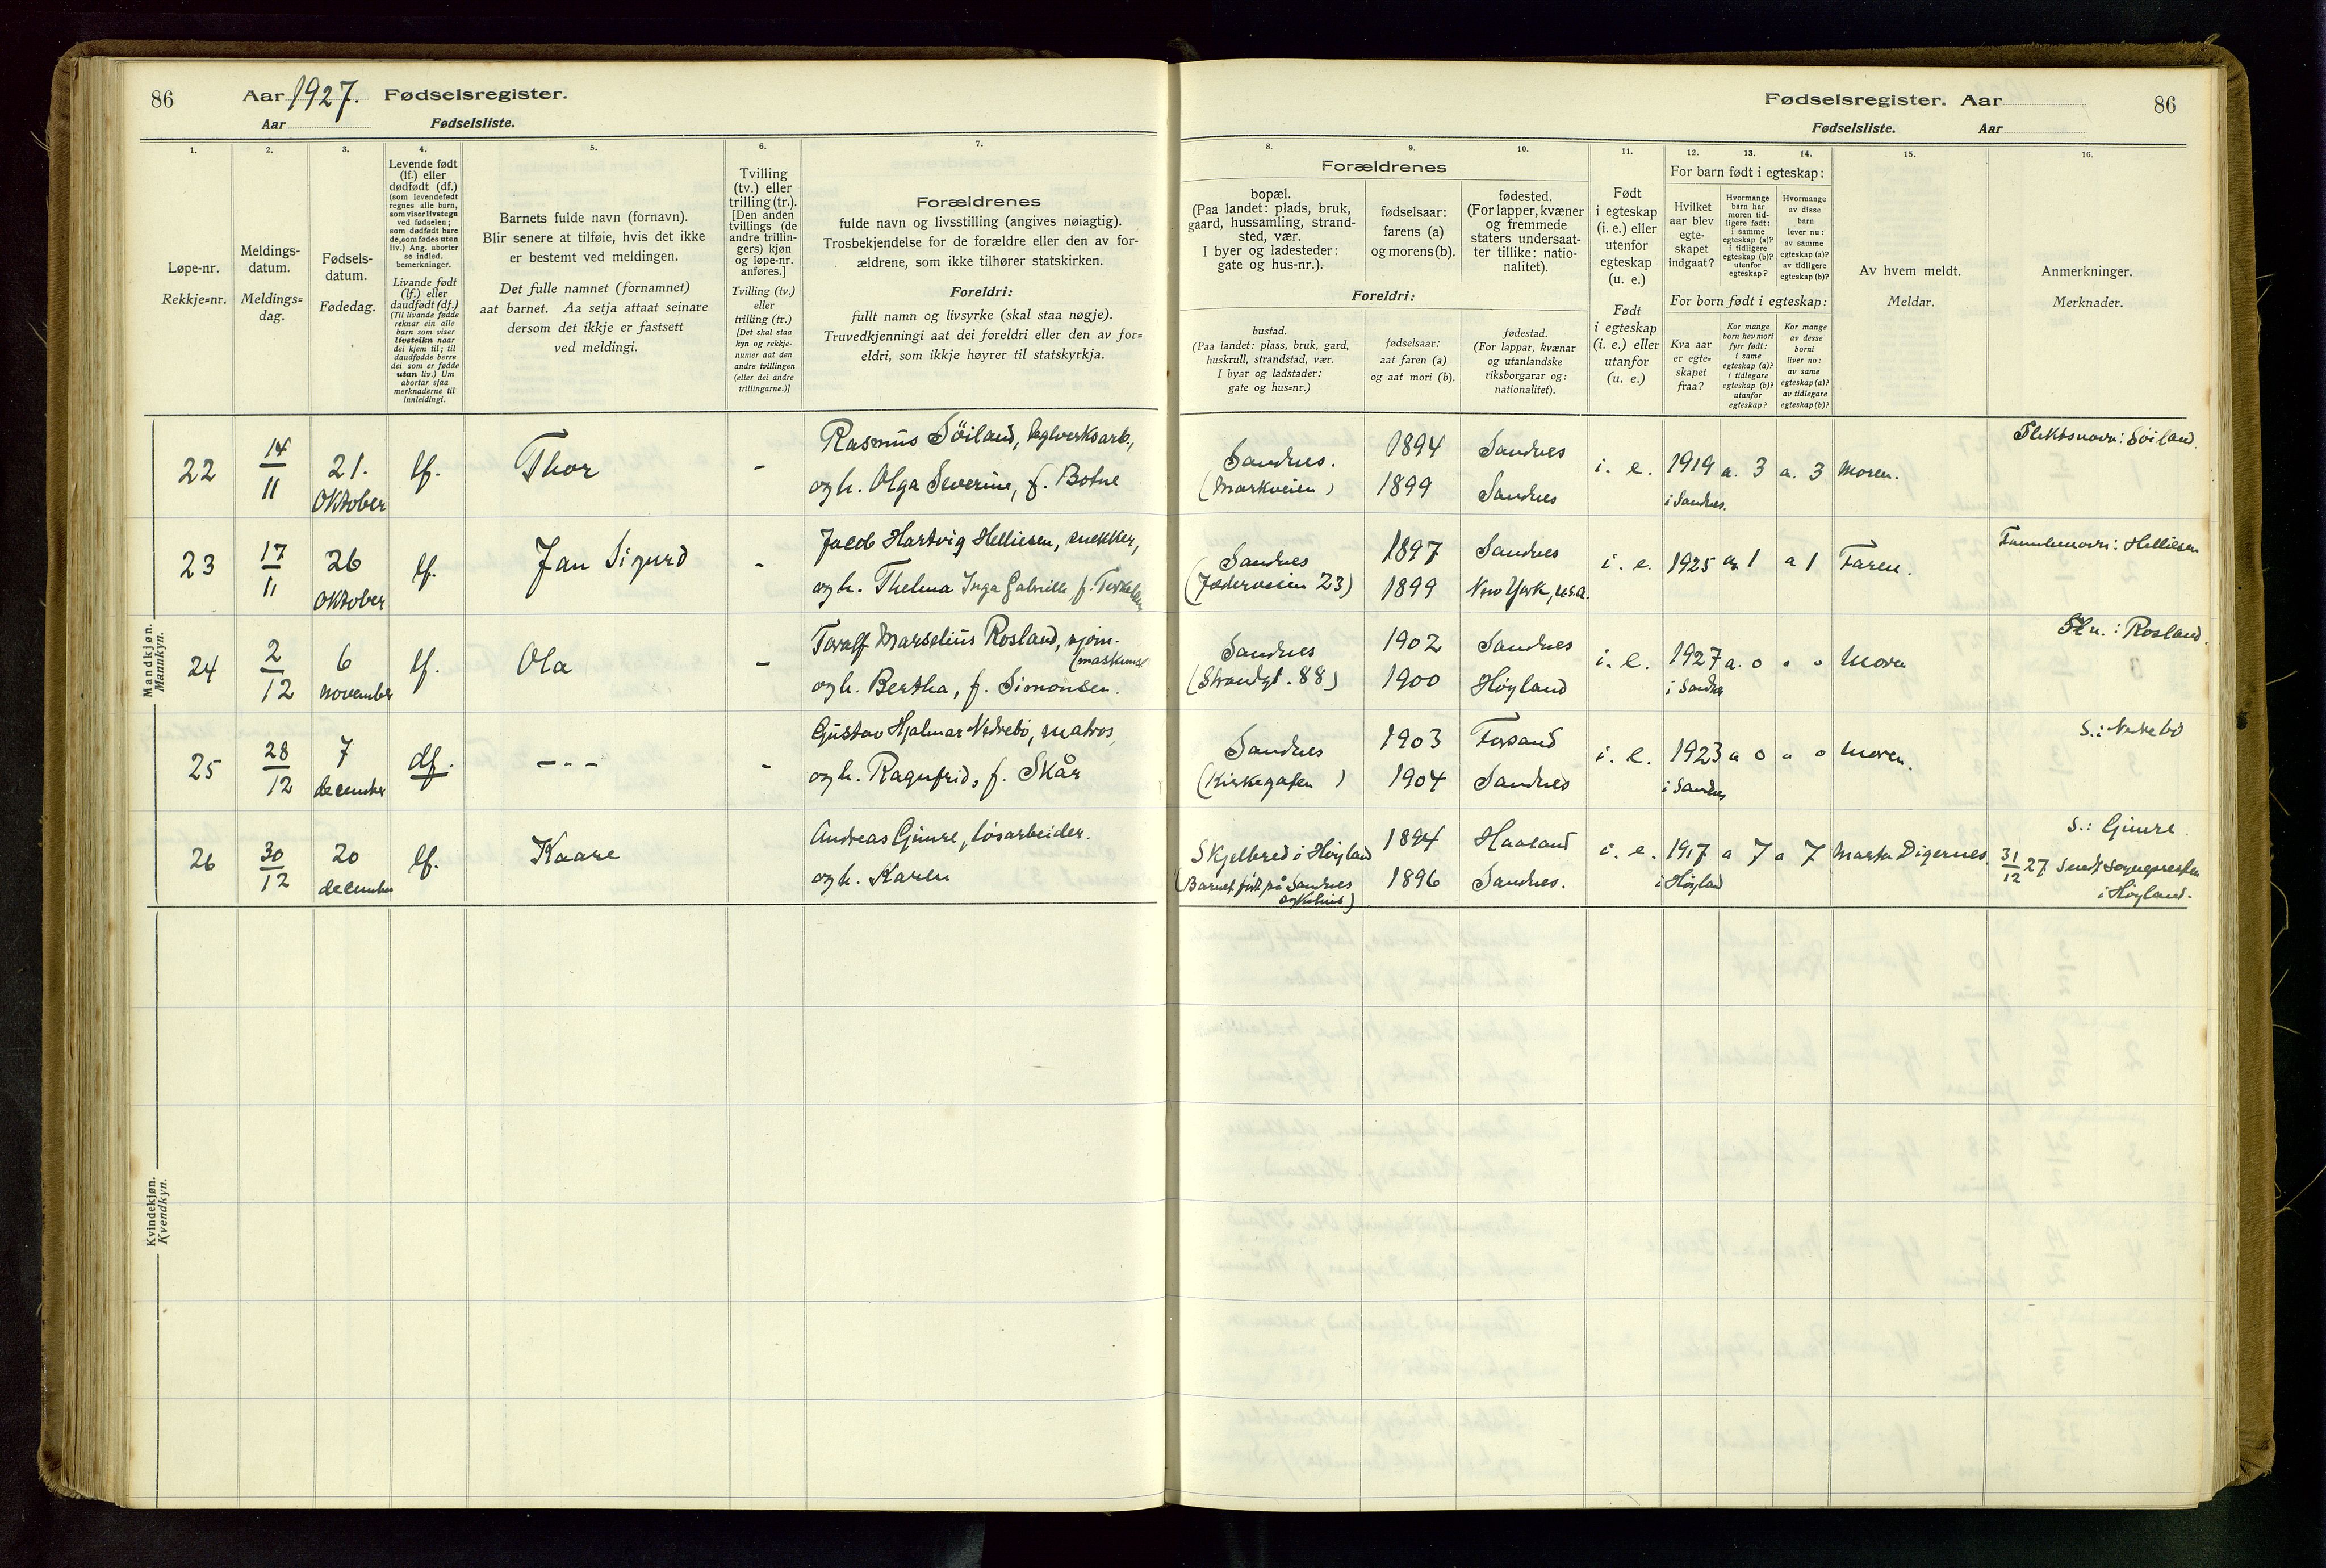 86
Aar 1927. Fødselsregister.
Aar Fødselsliste.
Fødselsregister. Aar
86
Fødselsliste. Aar
1.
Løpe-nr.
Rekkje=nr.
2.
Meldings-
datum.
Meldings=
dag.
3.
Fødsels-
datum.
Fødedag.
4.
Levende født
(lf.) eller
dødfødt (df.)
(som levendefødt
regnes alle barn,
som viser livstegn
ved fødselen;
som dødfødt bare
de, som fødes uten
liv.) Ang. aborter
se indled.
bemerkninger.
Livande født
(lf.) eller
daudfødt (df.)
(Til livande fødde
reknar ein alle
barn som viser
livsteikn naar
dei kjem til; til
daudfødde berre
dei som er fødde
utan liv.) Um
abortar sjaa
merknaderne til
innleidingi.
5.
Barnets fulde navn (fornavn).
Blir senere at tilføie, hvis det ikke
er bestemt ved meldingen.
Det fulle namnet (fornamnet)
aat barnet. Aa setja attaat seinare
dersom det ikkje er fastsett
ved meldingi.
6.
Tvilling
(tv.) eller
trilling (tr.).
[Den anden
tvillings (de
andre trillin-
gers) kjøn
og løpe-nr.
anføres.]
Tvilling (tv.)
eller
trilling (tr.)
[Det skal staa
kyn og rekkje-
numer aat den
andre tvillingen
(eller dei andre
trillingarne.)]
7.
Forældrenes
fulde navn og livsstilling (angives nøiagtig).
Trosbekjendelse for de forældre eller den av for-
ældrene, som ikke tilhører statskirken.
Foreldri:
fullt namn og livsyrke (skal staa nøgje).
Truvedkjenningi aat dei foreldri eller den av for=
eldri, som ikkje høyrer til statskyrkja.
Forældrenes
8.
bopæl.
(Paa landet: plads, bruk,
gaard, hussamling, strand-
sted, vær.
I byer og ladesteder:
gate og hus-nr.).
9.
fødselsaar:
farens (a)
og morens (b).
10.
fødested.
(For lapper, kvæner
og fremmede
staters undersaat-
ter tillike: natio-
nalitet).
Foreldri:
bustad.
(Paa landet: plass, bruk, gard,
huskrull, strandstad, vær.
I byar og ladstader:
gate og hus=nr.)
fødselsaar:
aat faren (a)
og aat mori (b).
fødestad.
(For lappar, kvænar
og utanlandske
riksborgarar og:
nationalitet).
11.
Født
i egteskap
(i. e.) eller
utenfor
egteskap
(u. e.)
Født
i egteskap
(i. e.) eller
utanfor
(u. e.)
12. 13. 14.
For barn født i egteskap:
Hvilket
aar blev
egte-
skapet
indgaat?
Hvormange
barn har
moren tid-
ligere født:
i samme
egteskap (a)?
i tidligere
egteskap (b)?
utenfor
egteskap?
Hvormange
av disse
barn
lever nu:
av samme
egteskap (a)?
av tidligere
egteskap (b)?
For born født i egteskap:
Kva aar
er egte=
skapet
fraa?
Kor mange
born hev mori
fyrr født:
i same
egteskap (a)?
i tidlegare
egteskap (b)?
utanfor
egteskap?
Kor mange
av desse
borni
liver no:
av same
egteskap (a)?
av tidlegare
egteskap (b)?
15.
Av hvem meldt.
Meldar.
16.
Anmerkninger.
Merknader.
Mandkjøn.
Mannkyn.
22 14/11 21. Oktober lf. Thor – Rasmus Söiland, teglverksarb.,
og h. Olga Severine, f. Botne
Sandnes. (Markveien) 1894 Sandnes
1899 Sandnes
i. e. 1919 i Sandnes. a. 3 a. 3 Moren. Slektsnavn: Söiland.
23 17/11 26 Oktober lf. Jan Sigurd – Jacob Hartvig Helliesen, snekker,
og h. Thelma Inga Gabrielle f.
Sandnes (Jæderveien 23) 1897 Sandnes
1899 New York, U.S.A.
i. e. 1925 a 1 a 1 Faren. Familienavn: Helliesen
24 2/12 6 november lf. Ola – Toralf Marselius Rosland, sjöm. (maskinist
og h. Bertha, f. Simonsen.
Sandnes (Strandgt. 88) 1902 Sandnes
1900 Høyland
i. e. 1927 i Sandnes a. 0 " 0 Moren Sln.: Rosland.
25 28/12 7 december df. – – – – Gustav Hjalmar Nedrebö, matros,
og h. Ragnfrid, f. Skår
Sandnes (Kirkegaten ) 1903 Forsand
1904 Sandnes
i. e. 1923 i Sandnes a 0 " 0 Moren. S.: Nedrebö
26 30/12 20 december lf. Kaare Andreas Gjmre, løsarbeider.
og h. Karen
Skjelbred i Høyland (Barnet født på Sandnes sykehus) 1894 Haaland
1896 Sandnes.
i. e. 1917 i Høyland a 7 a 7 Marta Digernes. S.: Gimre.
31/12 27 Sendt sognepresten
i Høyland.
Kvindekjøn.
Kvendkyn.